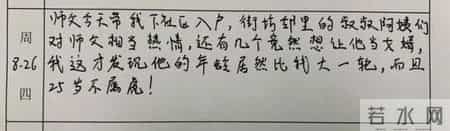 师父今天带我下社区入户,街坊邻里的叔叔阿姨们
对师父相当热情,还有几个竟然想让他当女婿,
我这才发现他的年龄居然比我大一轮,而且
25岁不属虎!
周
8.26
四
若水网